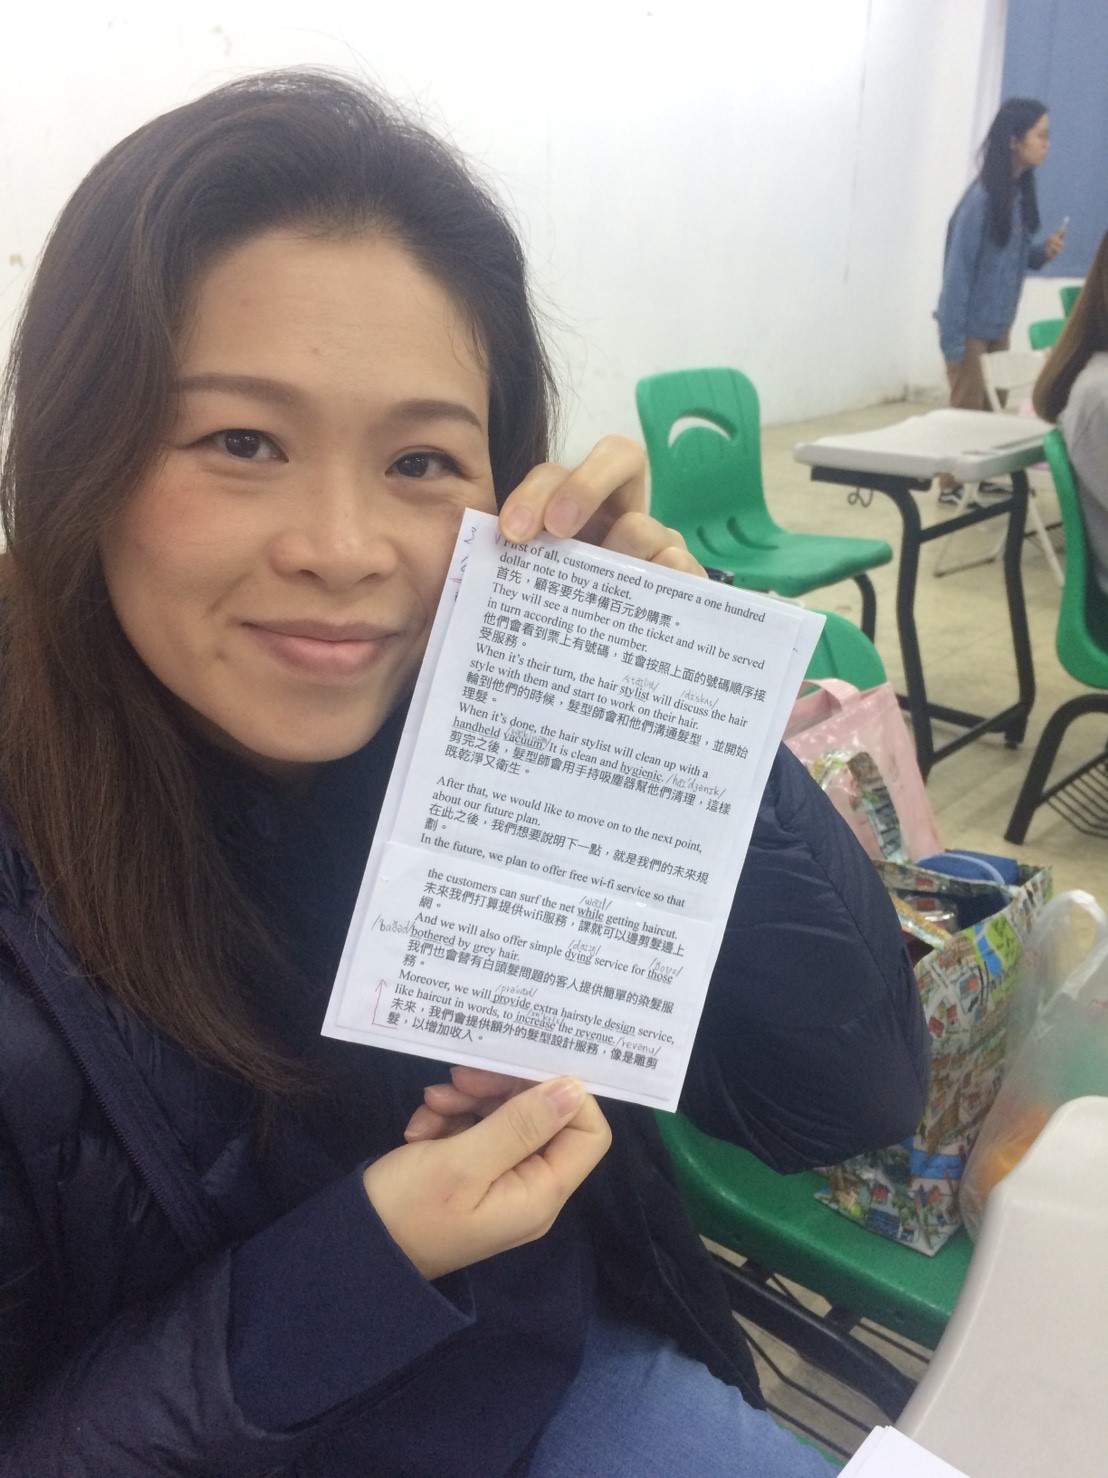 First of all, customers need to prepare a one hundred
dollar note to buy a ticket.
首先，顧客要先準備百元鈔購票。
They will see a number on the ticket and will be served
in turn according to the number.
他們會看到票上有號碼，並會按照上面的號碼順序接
受服務。
When it's their turn, the hair stylist will discuss the hair
style with them and start to work on their hair.
輪到他們的時候，髮型師會和他們溝通髮型，並開始
理髮。
When it's done, the hair stylist will clean up with a
handheld vacuum. It is clean and hygienic. /haɪ'dʒɛnɪk/
剪完之後，髮型師會用手持吸塵器幫他們清理，這樣
既乾淨又衛生。
After that, we would like to move on to the next point,
about our future plan.
在此之後，我們想要說明下一點，就是我們的未來規
劃。
In the future, we plan to offer free wi-fi service so that
the customers can surf the net while getting haircut.
未來我們打算提供wifi服務，課就可以邊剪髮邊上
網。
And we will also offer simple dying service for those
bothered by grey hair.
我們也會替有白頭髮問題的客人提供簡單的染髮服
務。
Moreover, we will provide extra hairstyle design service,
like haircut in words, to increase the revenue. /revenu/
未來，我們會提供額外的髮型設計服務，像是雕剪
髮，以增加收入。